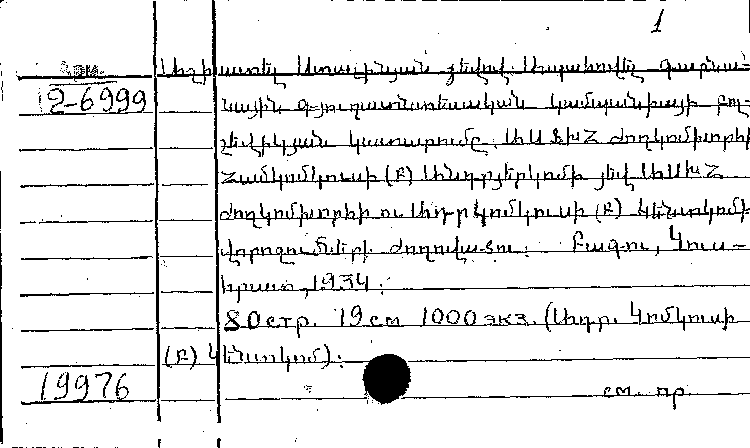 1
Арм.
2-6999
Աշխատել Ստալինյան շեվով. Ապահովել գարնա-
նային գյուղատնտեսական կամպանիայի բոլ-
շեվիկյան կատարումը. ԱՍՖԽՀ Ժողկոմխորհի
Համկոմկուսի (Բ) Անդրյերկոմի յեվ ԱԽՍՀ
Ժողկոմխորհի ու Ադրկոմկուսի (Բ) Կենտկոմի
վորոշումների ժողովածու: Բագու, Կուս-
հրատ, 1934:
80 стр. 19 см 1000 экз. (Ադր. Կոմկուսի
(Բ) Կենտկոմ):
19976
см. пр.